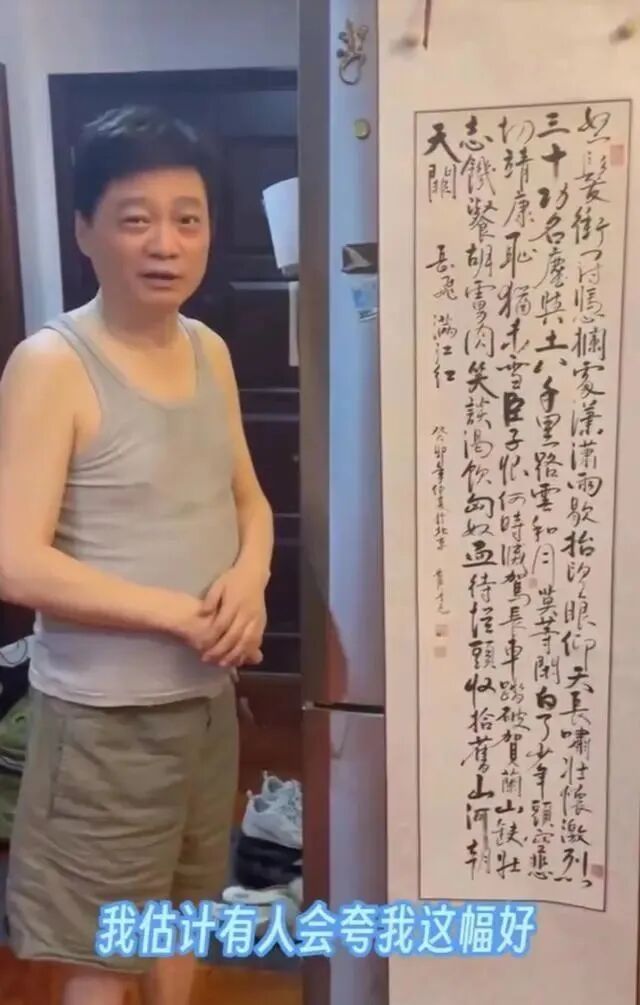 怒髮衝冠憑欄處瀟瀟雨歇抬望眼仰天長嘯壯懷激烈
三十功名塵與土八千里路雲和月莫等閒白了少年頭空悲
切靖康恥猶未雪臣子恨何時滅駕長車踏破賀蘭山缺壯
志饑餐胡虜肉笑談渴飲匈奴血待從頭收拾舊山河朝
天闕 岳飛 滿江红
癸卯年仲夏於北京
我估计有人会夸我这幅好